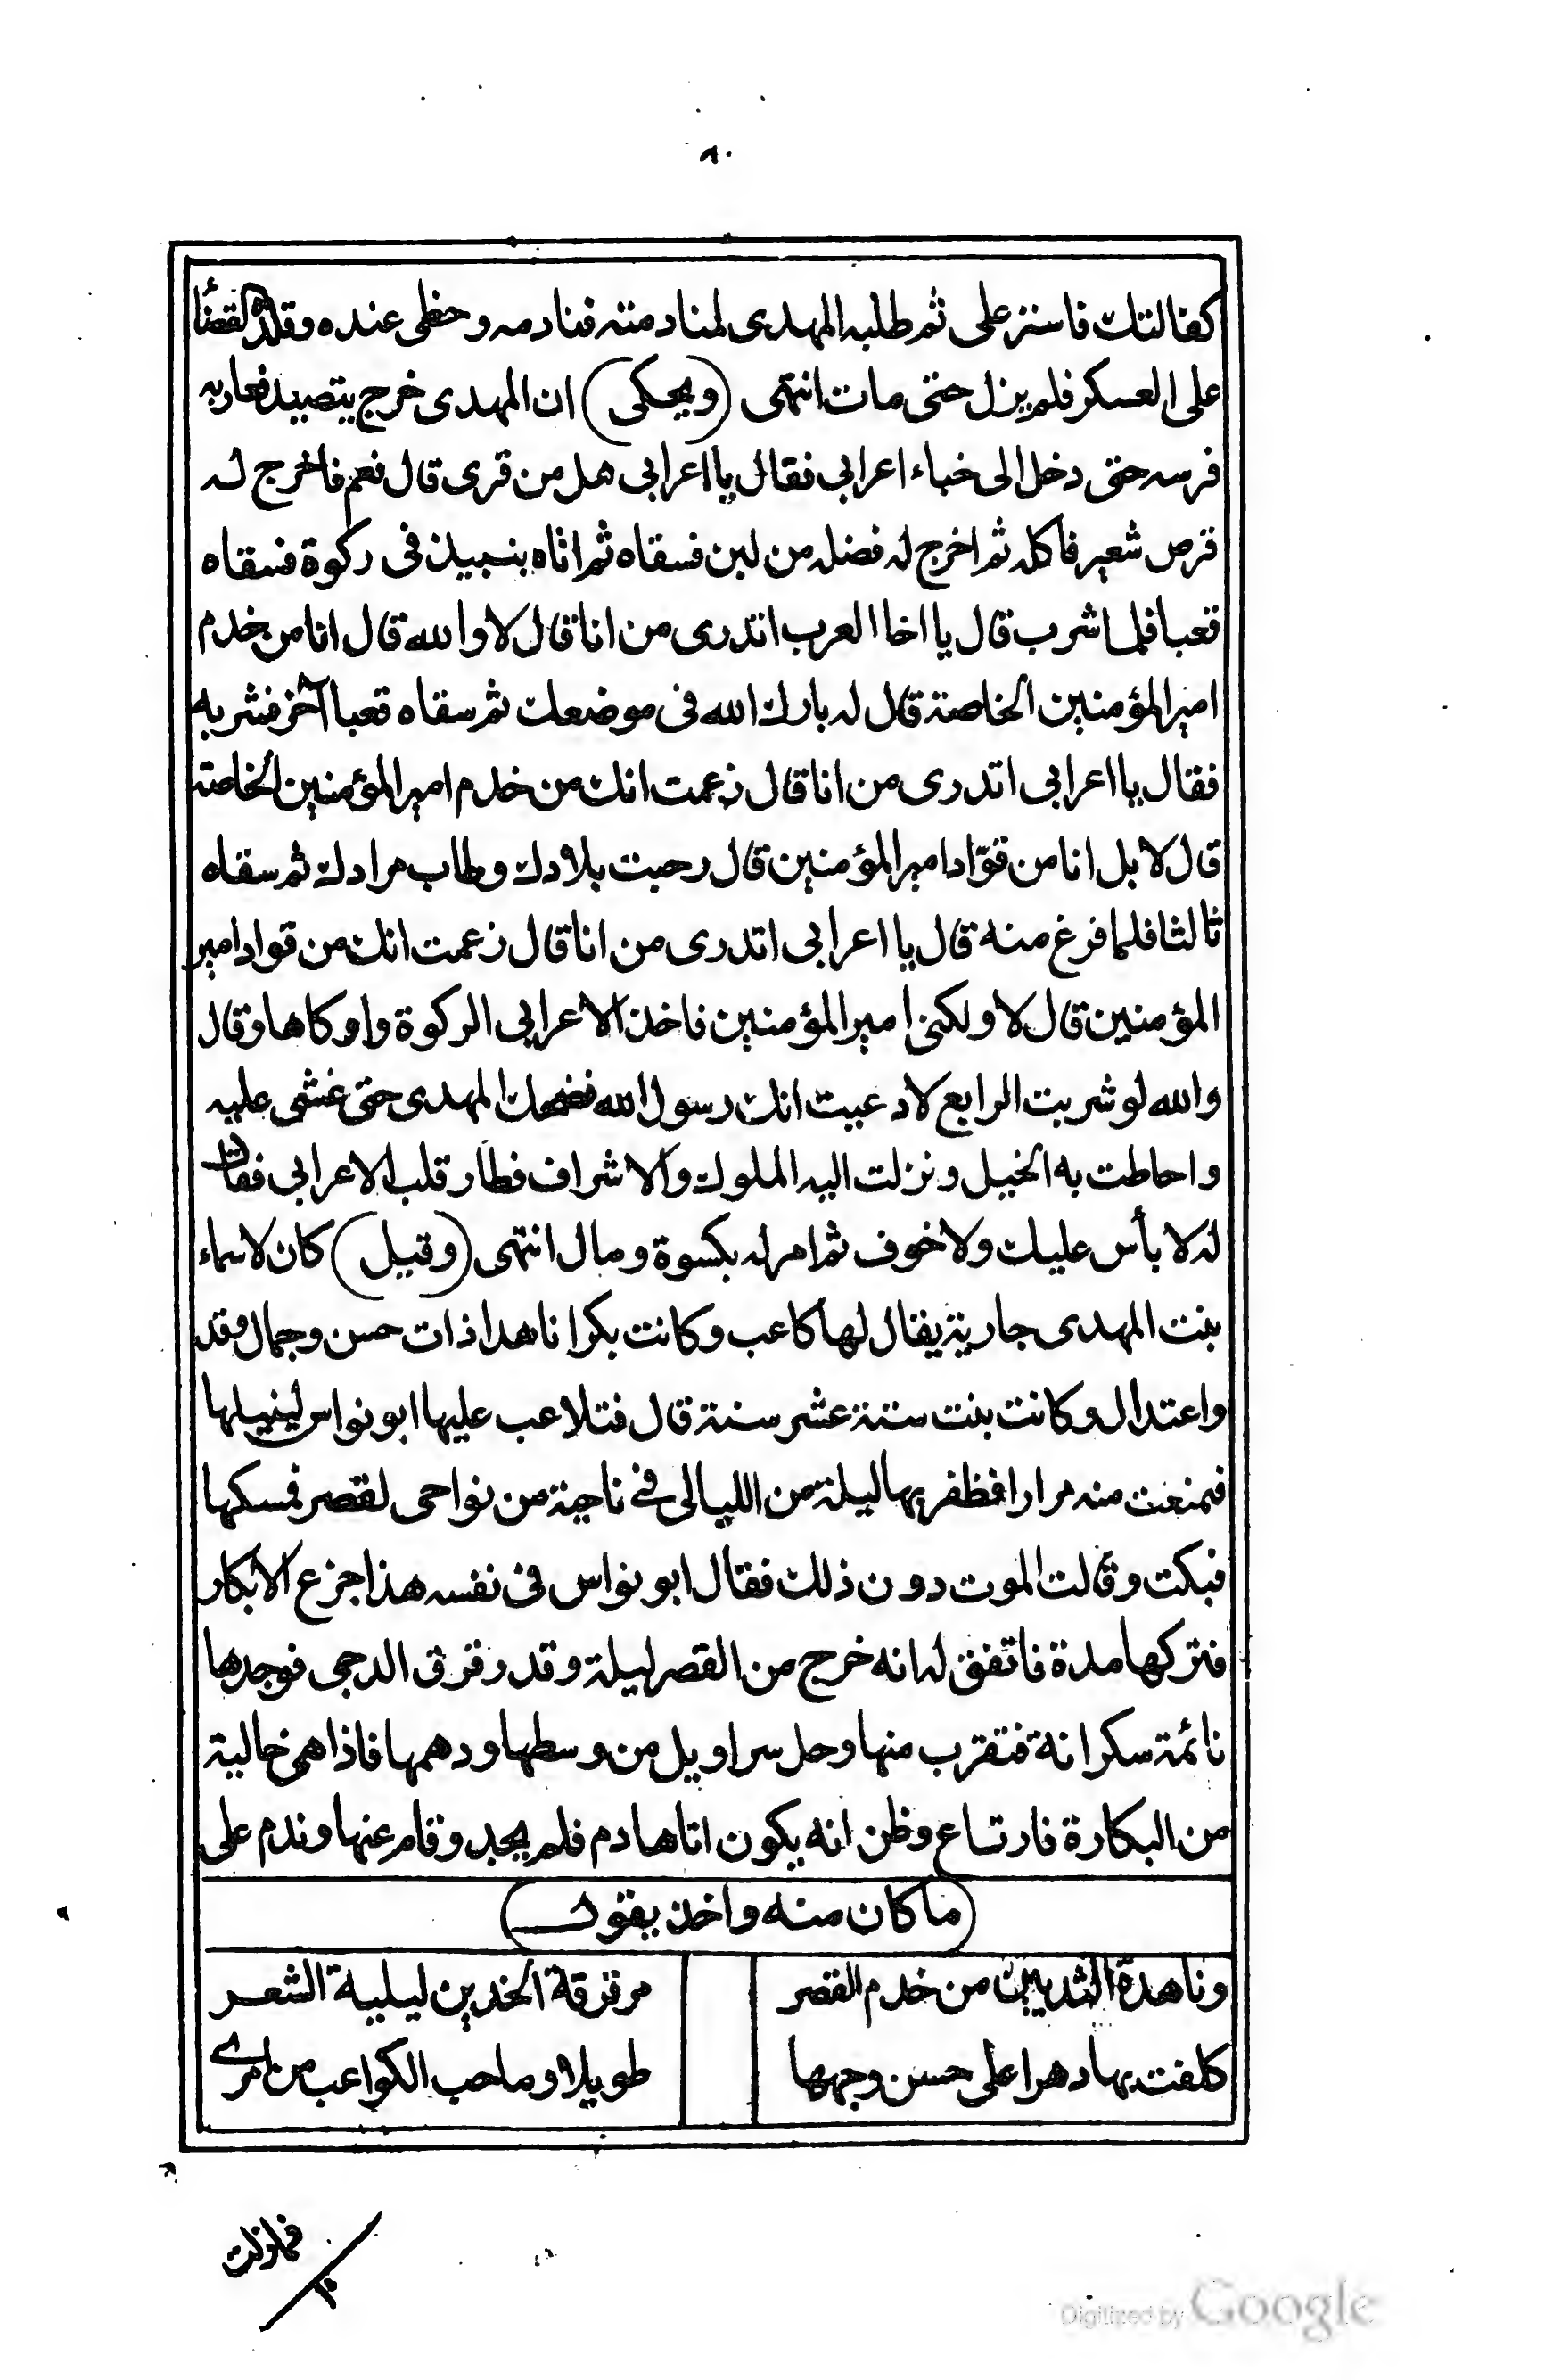 ٨٠
كفالتك فاستزعلى ثم طلبه المهدى لمنادمته فنادمه وحظى عنده وقلده القضا
على العسكر فلم يزل حتى مات انتهى (ويحكى) ان المهدى خرج يتصيد فعاربه
فرسه حتى دخل الى خباء اعرابى فقال يا اعرابى هل من قرى قال نعم فاخرج له
قرص شعير فاكله ثم اخرج له فضله من لبن فسقاه ثم اتاه بنبيذ فى ركوة فسقاه
قعبا فلما شرب قال يا اخا العرب اتدرى من انا قال لا والله قال انا من خدم
امير المؤمنين الخاصة قال له بارك الله فى موضعك ثم سقاه قعبا آخر فشربه
فقال يا اعرابى اتدرى من انا قال زعمت انك من خدم امير المؤمنين الخاصة
قال لا بل انا من قوّاد امير المؤمنين قال رحبت بلادك وطاب مرادك ثم سقاه
ثالثا فلما فرغ منه قال يا اعرابى اتدرى من انا قال زعمت انك من قواد امير
المؤمنين قال لا ولكنى امير المؤمنين فاخذ الاعرابى الركوة واوكاها وقال
والله لو شربت الرابع لادعيت انك رسول الله فضحك المهدى حتى غشى عليه
واحاطت به الخيل ونزلت اليه الملوك والاشراف فطار قلب الاعرابى فقال
له لا بأس عليك ولا خوف ثم امر له بكسوة ومال انتهى (وقيل) كان لاسماء
بنت المهدى جارية يقال لها كاعب وكانت بكرا ناهدا ذات حسن وجمال وقد
واعتدال وكانت بنت ستة عشر سنة قال فتلاعب عليها ابو نواس لينيلها
فمنعت منه مرارا فظفر بها ليلة من الليالى فى ناحية من نواحى لقصر فمسكها
فبكت وقالت الموت دون ذلك فقال ابو نواس فى نفسه هذا جزع الابكار
فتركها مدة فاتفق له انه خرج من القصر ليلة وقد رقرق الدجى فوجدها
نائمة سكرانة فتقرب منها وحل سراويل من وسطها ودهمها فاذا هى خالية
من البكارة فارتاع وظن انه يكون اتاها دم فلم يجد وقام عنها وندم على
(ما كان منه واخذ يقول)
وناهدة الثديين من خدم القصر مرقرقة الخدين ليلية الشعر
كلفت بها دهرا على حسن وجهها طويلا وما حب الكواعب من امرى
فمازلت
Digitized by Google